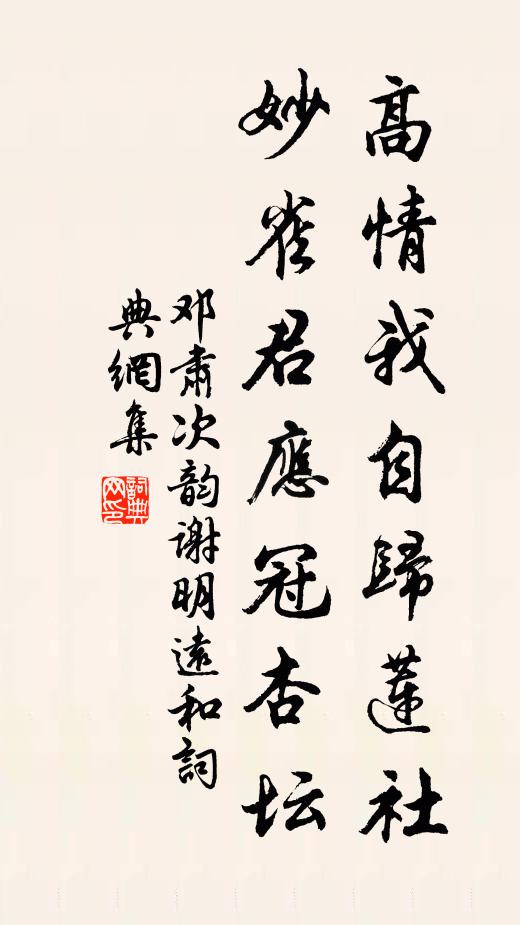 高情我自歸蓮社
妙君應冠杏坛
邓肅次韵謝明遠和詞
典網集
詞典
网印